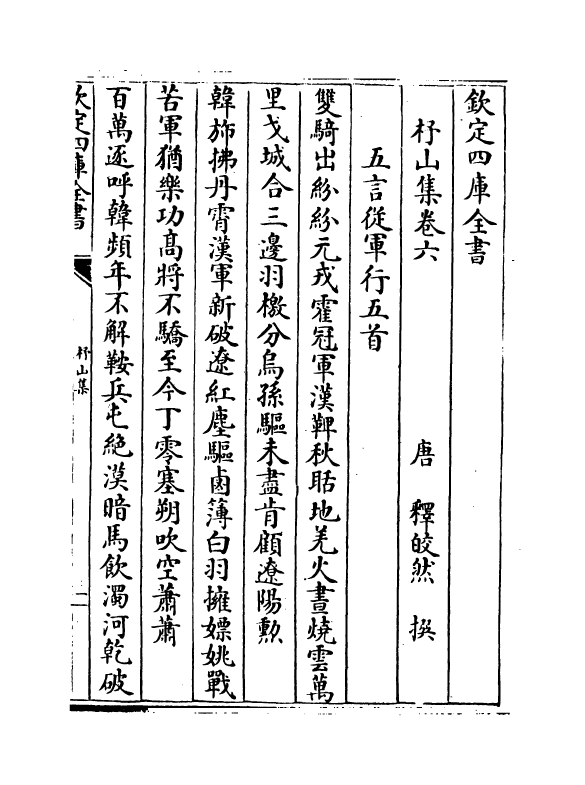 欽定四庫全書
杼山集卷六　唐　釋皎然　撰
五言從軍行五首
雙騎出紛紛元戎霍冠軍漢鞞秋聒地羌火晝燒雲萬
里戈城合三邊羽檄分烏孫驅未盡肯顧遼陽勲
韓斾拂丹霄漢軍新破遼紅塵驅鹵簿白羽擁嫖姚戰
苦軍猶樂功髙將不驕至今丁零塞朔吹空蕭蕭
百萬逐呼韓頻年不解鞍兵屯絶漠暗馬飲濁河乾破
欽定四庫全書
杼山集